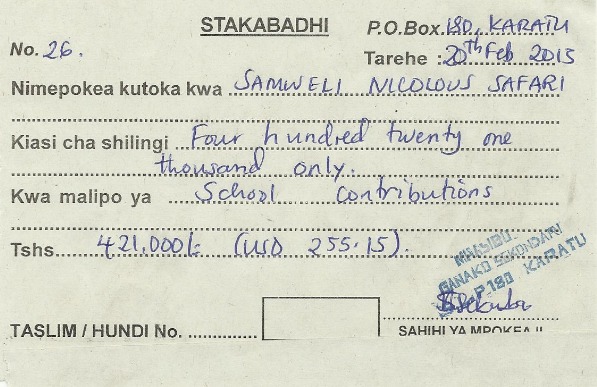 STAKABADHI
P.O.Box 180, KARATU
No. 26.
Tarehe : 20th Feb 2013
Nimepokea kutoka kwa SAMWELI NICOLOUS SAFARI
Kiasi cha shilingi Four hundred twenty one
thousand only.
Kwa malipo ya School Contributions
Tshs 421,000/= (USD 255.15).
MHASIBU
GANAKO SEKONDARI
P.180 KARATU
TASLIM / HUNDI No.
SAHIHI YA MPOKEAJI